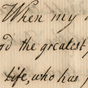 When my
d the greatest
Life, who has